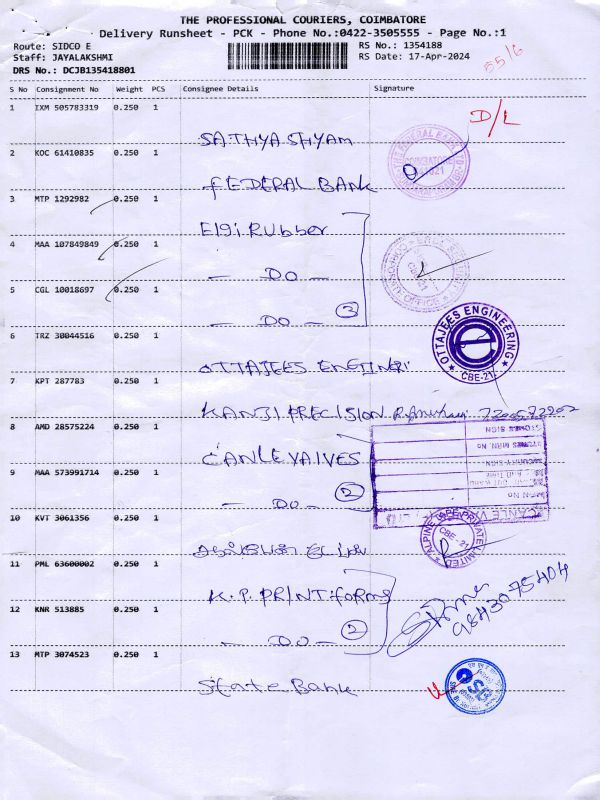 THE PROFESSIONAL COURIERS, COIMBATORE
Delivery Runsheet - PCK - Phone No.:0422-3505555 - Page No.:1
Route: SIDCO E RS No.: 1354188
Staff: JAYALAKSHMI RS Date: 17-Apr-2024
DRS No.: DCJB135418801
55/6
S No Consignment No Weight PCS Consignee Details Signature
1 IXM 505783319 0.250 1
D/L
SATHYA SHYAM
2 KOC 61410835 0.250 1
THE FEDERAL BANK
FEDERAL BANK
3 MTP 1292982 0.250 1
Elgi Rubber
4 MAA 107849849 0.250 1
— DO —
5 CGL 10018697 0.250 1
— DO — 3
6 TRZ 30044516 0.250 1
OTTAJEES ENGINEERING
CBE-21
OTTAJEES
7 KPT 287783 0.250 1
KANJI PRECISION
8 AMD 28575224 0.250 1
CANLE VAIVES
9 MAA 573991714 0.250 1
— DO — 2
10 KVT 3061356 0.250 1
ALPINE TAPE PRIVATE LIMITED
CBE-21
11 PML 63600002 0.250 1
K.P. PRINT forms
12 KNR 513885 0.250 1
9843075404
— DO — 2
13 MTP 3074523 0.250 1
State Bank